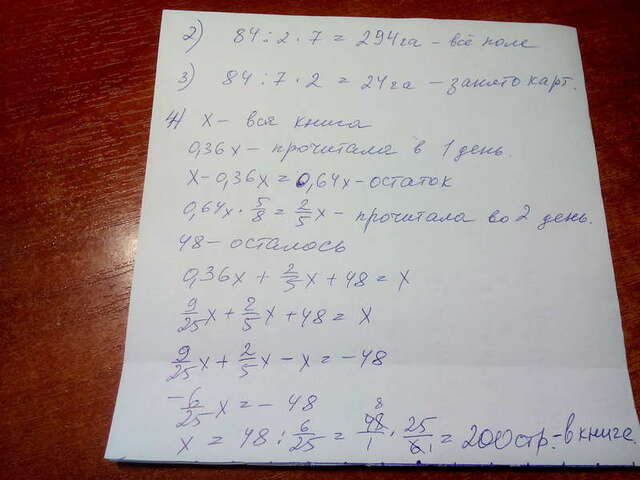 2) 84 : 2 · 7 = 294 га - всё поле
3) 84 : 7 · 2 = 24 га - занято карт.
4) х - вся книга
0,36х - прочитала в 1 день.
х - 0,36х = 0,64х - остаток
0,64х · 5/8 = 2/5 х - прочитала во 2 день.
48 - осталось
0,36х + 2/5 х + 48 = х
9/25 х + 2/5 х + 48 = х
9/25 х + 2/5 х - х = -48
-6/25 х = -48
х = 48 : 6/25 = 48/1 8 · 25/6 1 = 200 стр. - в книге.